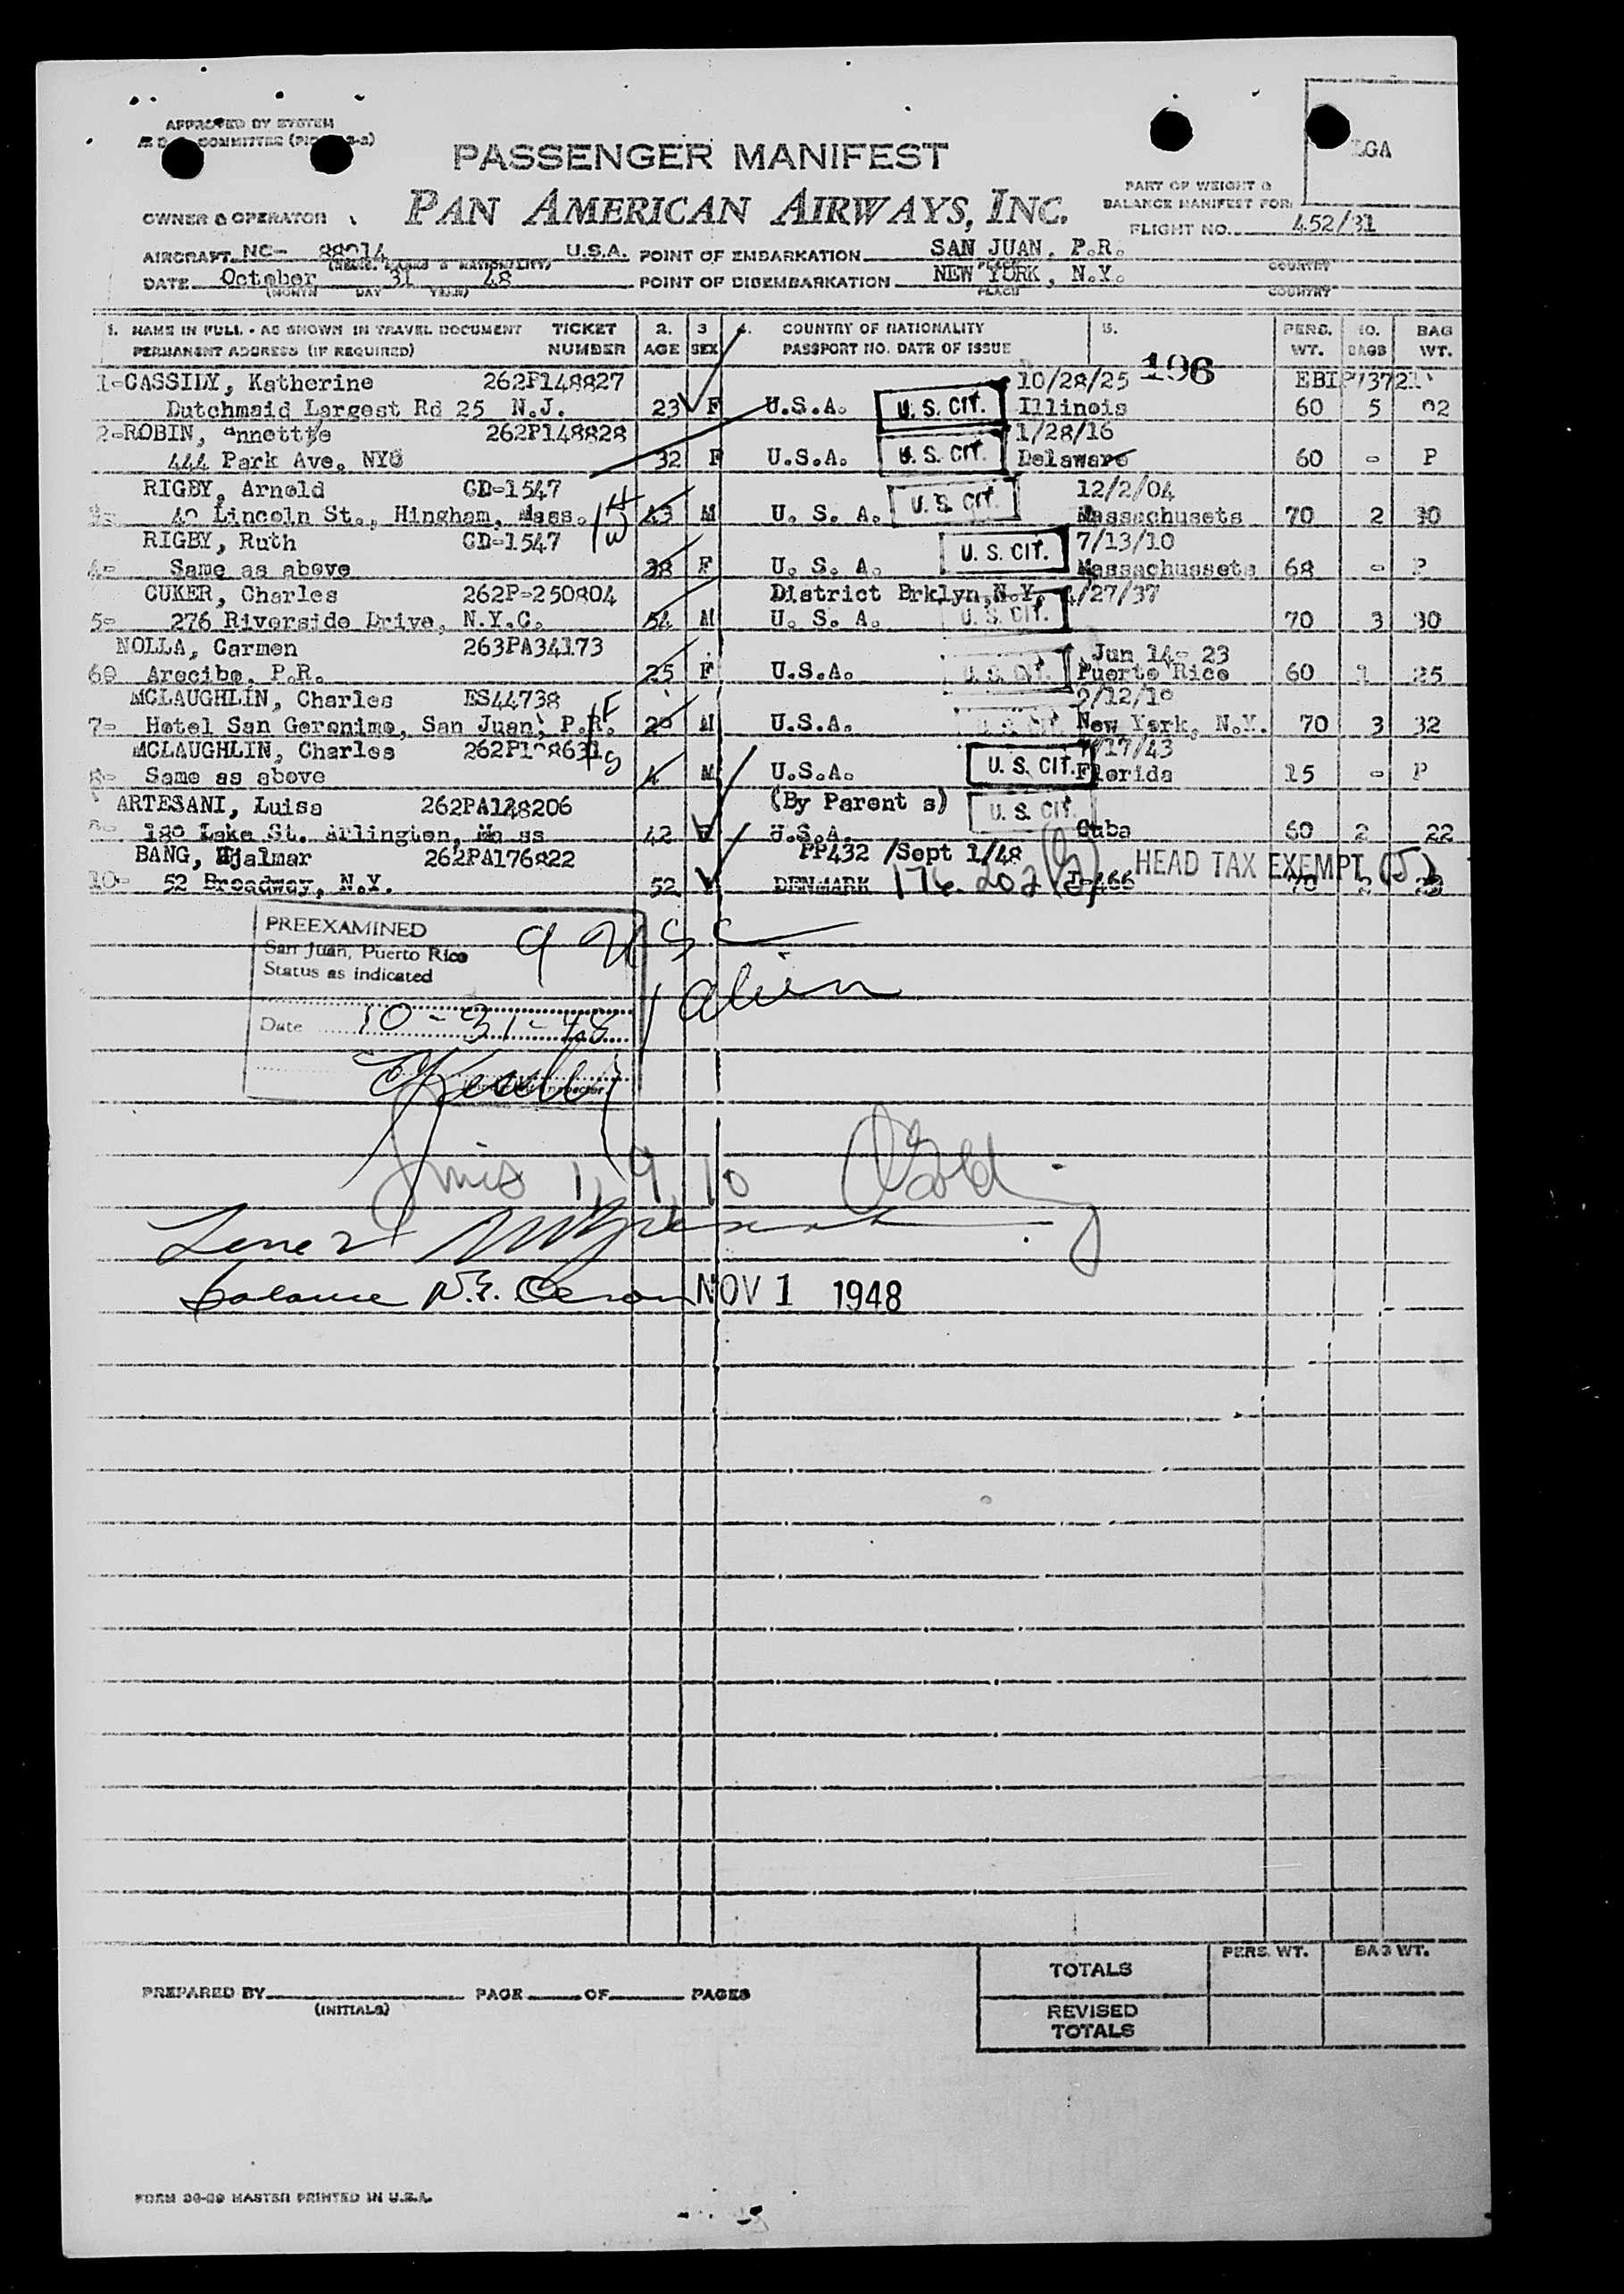 APPROVED BY SYSTEM
COMMITTEE
LGA
PASSENGER MANIFEST
PART OF WEIGHT &
BALANCE MANIFEST FOR
PAN AMERICAN AIRWAYS, INC.
OWNER & OPERATOR
FLIGHT NO. 452/31
AIRCRAFT NC- 88914 U.S.A. POINT OF EMBARKATION SAN JUAN, P.R.
PLACE COUNTRY
DATE October 31 48 POINT OF DISEMBARKATION NEW YORK, N.Y.
(MONTH DAY YEAR) PLACE COUNTRY
1. NAME IN FULL - AS SHOWN IN TRAVEL DOCUMENT TICKET 2. 3 4. COUNTRY OF NATIONALITY 5. PERS. NO. BAG
PERMANENT ADDRESS (IF REQUIRED) NUMBER AGE SEX PASSPORT NO. DATE OF ISSUE WT. BAGS WT.
196
1-CASSIDY, Katherine 262P148827 10/28/25
Dutchmaid Largest Rd 25 N.J. 23 F U.S.A. U. S. CIT. Illinois 60 5
2-ROBIN, 262P148828 1/28/16
444 Park Ave. NYC 32 F U.S.A. U. S. CIT. Delaware 60 - P
RIGBY, Arnold CD-1547 H 12/2/04
3- Lincoln St., Hingham, Mass. W 43 M U. S. A. U. S. CIT. Massachusets 70 2 30
RIGBY, Ruth CD-1547 7/13/10
4- Same as above 38 F U. S. A. U. S. CIT. Massachussets 68 - P
CUKER, Charles 262P-250804 District Brklyn,N.Y. 4/27/37
5- 276 Riverside Drive, N.Y.C. 54 M U. S. A. U. S. CIT. 70 3 30
NOLLA, Carmen 263PA34173 Jun 14- 23
6- Arecibo, P.R. 25 F U.S.A. U. S. CIT. Puerto Rico 60 1 25
MCLAUGHLIN, Charles ES44738 F
7- Hotel San Geronimo, San Juan, P.R. M U.S.A. U. S. CIT. New York, N.Y. 70 3 32
MCLAUGHLIN, Charles S 7/17/43
8- Same as above 4 M U.S.A. U. S. CIT. Florida 15 - P
ARTESANI, Luisa 262PA148206 (By Parent s) U. S. CIT.
Lake St. Arlington, Ma ss 42 U.S.A. Cuba 60 2 22
BANG, Hjalmar 262PA176822 PP432 /Sept 1/48 HEAD TAX EXEMPT (5)
10- 52 Broadway, N.Y. 52 DENMARK 176.202 J-466 70 2
PREEXAMINED
San Juan, Puerto Rico
Status as indicated
9 USC
1 alien
Date 10-31-48
Lines 1, 9, 10
Line 2
balance
NOV 1 1948
TOTALS PERS. WT. BAG WT.
PREPARED BY PAGE OF PAGES
(INITIALS)
REVISED
TOTALS
FORM MASTER PRINTED IN U.S.A.